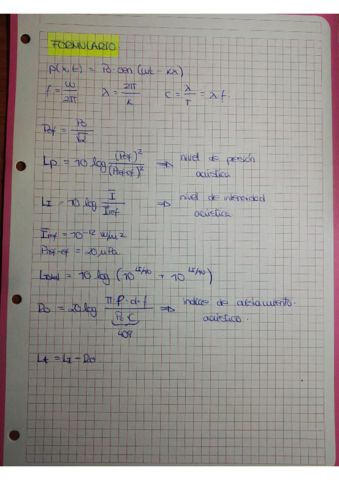 FORMULARIO.
p(x,t) = Po sen (wt - kx)
f = w/2π   λ = 2π/k   c = λ/T = λ f
Pef = Po/√2
Lp = 10 log (Pef)²/(Pref-ef)² ⇒ nivel de presión acústica
LI = 10 log I/Iref ⇒ nivel de intensidad acústica
Iref = 10⁻¹² w/m²
Pref-ef = 20 μPa
Ltotal = 10 log (10^(L1/10) + 10^(L2/10))
Ro = 20 log π·f·d·f/Po·c ⇒ índice de aislamiento acústico.
408
Lt = LI - Ro